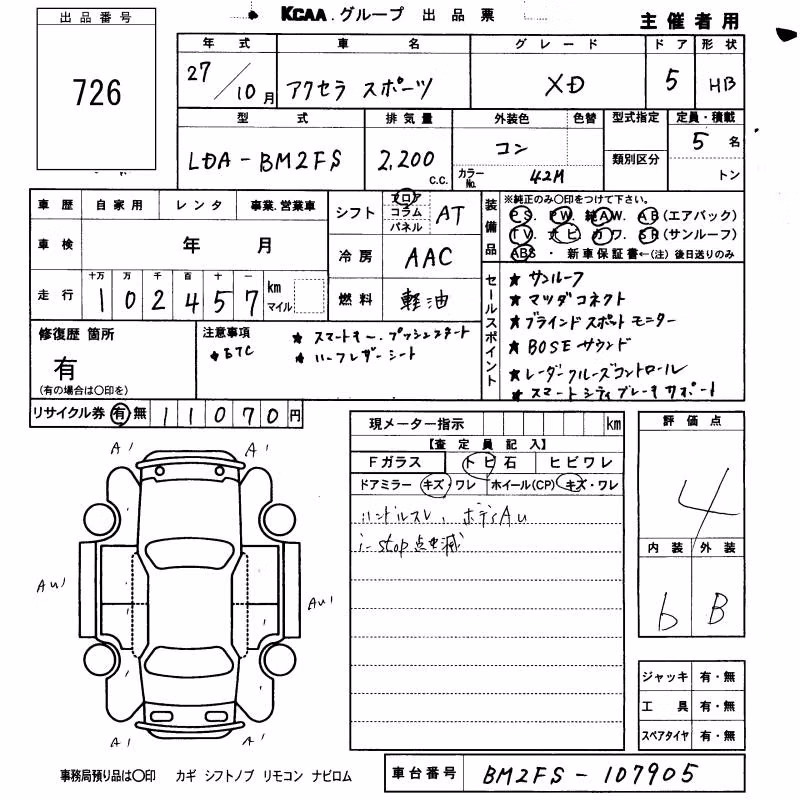 KCAA.グループ 出品票
主催者用
出品番号
726
年式 車名 グレード ドア 形状
27/10月 アクセラ スポーツ XD 5 HB
型式 排気量 外装色 色替 型式指定 定員・積載
LDA-BM2FS 2,200 c.c. コン 5名
カラーNo. 42M 類別区分 トン
車歴 自家用 レンタ 事業.営業車
車検 年 月
走行 十万 万 千 百 十 一
1 0 2 4 5 7 km マイル
シフト フロア コラム パネル AT
冷房 AAC
燃料 軽油
装備品
※純正のみ○印をつけて下さい。
PS. PW. 純AW. AB(エアバック)
TV. ナビ カワ. SR(サンルーフ)
ABS ・ 新車保証書←(注) 後日送りのみ
セールスポイント
★ サンルーフ
★ マツダコネクト
★ ブラインドスポットモニター
★ BOSEサウンド
★ レーダークルーズコントロール
★ スマートシティブレーキサポート
修復歴 箇所
有
(有の場合は○印を)
注意事項
★ スマートキー.プッシュスタート
★ ETC
★ ハーフレザーシート
リサイクル券 有 無 11070円
現メーター指示 km
【査定員記入】
Fガラス トビ石 ヒビワレ
ドアミラー キズ・ワレ ホイール(CP) キズ・ワレ
ハンドルスレ、ボディAu
i-stop点滅
評価点
4
内装 外装
6 B
A1 A1
Au1 Au1
A1 A1
ジャッキ 有・無
工具 有・無
スペアタイヤ 有・無
事務局預り品は○印 カギ シフトノブ リモコン ナビロム
車台番号 BM2FS-107905